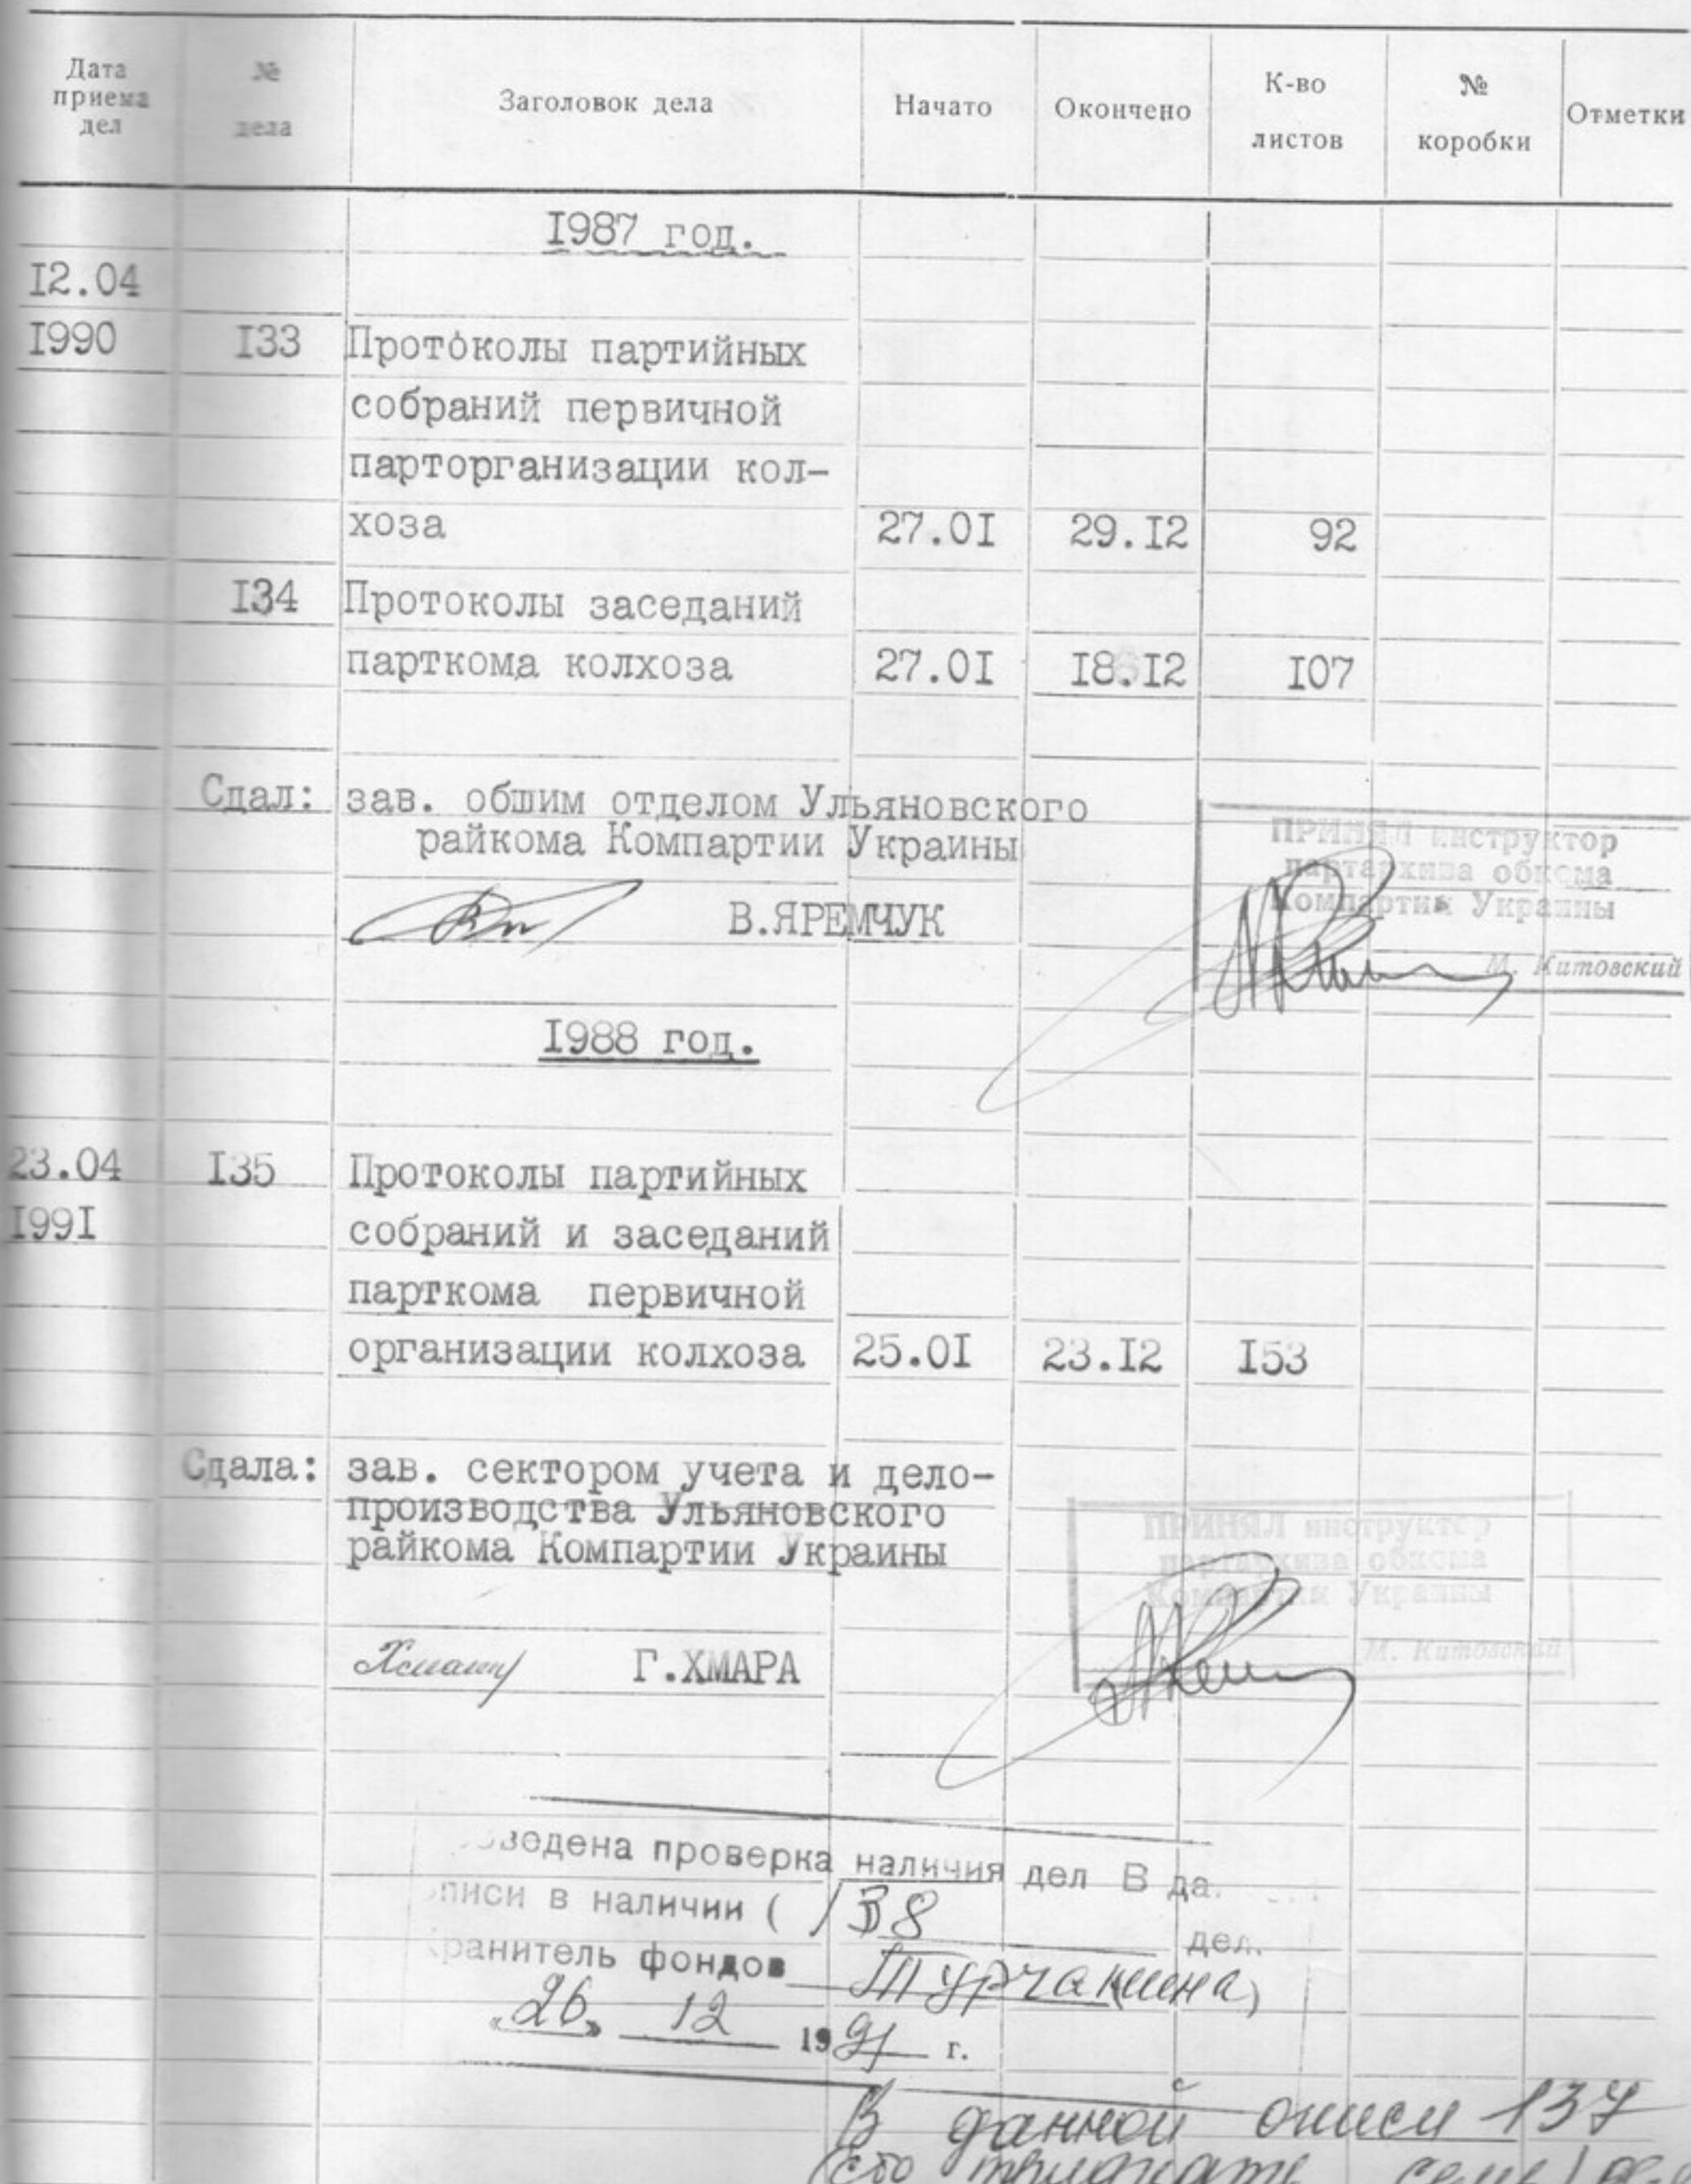 Дата приема дел № дела Заголовок дела Начато Окончено К-во листов № коробки Отметки
I987 год.
I2.04
I990 I33 Протоколы партийных
собраний первичной
парторганизации кол-
хоза 27.0I 29.I2 92
I34 Протоколы заседаний
парткома колхоза 27.0I I8.I2 I07
Сдал: зав. обшим отделом Ульяновского
райкома Компартии Украины
В.ЯРЕМЧУК
ПРИНЯЛ инструктор
партархива обкома
Компартии Украины
М. Китовский
I988 год.
23.04 I35 Протоколы партийных
I99I собраний и заседаний
парткома первичной
организации колхоза 25.0I 23.I2 I53
Сдала: зав. сектором учета и дело-
производства Ульяновского
райкома Компартии Украины
Г.ХМАРА
ПРИНЯЛ инструктор
партархива обкома
Компартии Украины
М. Китовский
проверка наличия дел В
в наличии ( 138 дел.
фондов
«26» 12 1991 г.
В данной описи 137
(сто тридцать семь)